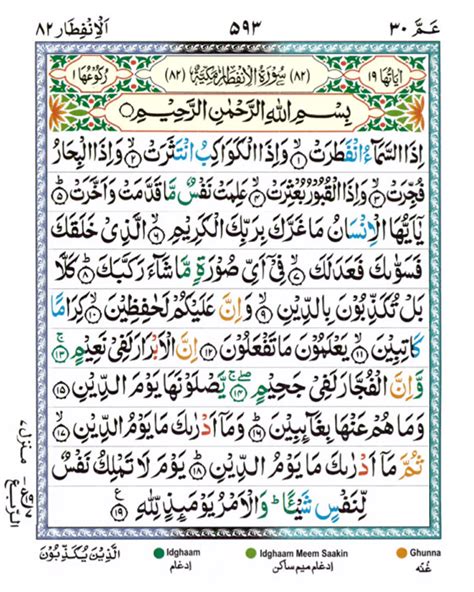 عَمَّ ٣٠ ٥٩٣ اَلْاِنْفِطَار ٨٢
اٰيَاتُهَا ١٩ (٨٢) سُوْرَةُ الْاِنْفِطَارِ مَكِّيَّةٌ (٨٢) رُكُوْعُهَا ١
بِسْمِ اللهِ الرَّحْمٰنِ الرَّحِيْمِ
اِذَا السَّمَآءُ انْفَطَرَتْ ۙ١ وَاِذَا الْكَوَاكِبُ انْتَثَرَتْ ۙ٢ وَاِذَا الْبِحَارُ
فُجِّرَتْ ۙ٣ وَاِذَا الْقُبُوْرُ بُعْثِرَتْ ۙ٤ عَلِمَتْ نَفْسٌ مَّا قَدَّمَتْ وَاَخَّرَتْ ؕ٥
يٰۤاَيُّهَا الْاِنْسَانُ مَا غَرَّكَ بِرَبِّكَ الْكَرِيْمِ ۙ٦ الَّذِيْ خَلَقَكَ
فَسَوّٰىكَ فَعَدَلَكَ ۙ٧ فِيْۤ اَيِّ صُوْرَةٍ مَّا شَآءَ رَكَّبَكَ ؕ٨ كَلَّا
بَلْ تُكَذِّبُوْنَ بِالدِّيْنِ ۙ٩ وَاِنَّ عَلَيْكُمْ لَحٰفِظِيْنَ ۙ١٠ كِرَامًا
كَاتِبِيْنَ ۙ١١ يَعْلَمُوْنَ مَا تَفْعَلُوْنَ ١٢ اِنَّ الْاَبْرَارَ لَفِيْ نَعِيْمٍ ۚ١٣
وَّاِنَّ الْفُجَّارَ لَفِيْ جَحِيْمٍ ۚۖ١٤ يَّصْلَوْنَهَا يَوْمَ الدِّيْنِ ١٥
وَمَا هُمْ عَنْهَا بِغَآئِبِيْنَ ؕ١٦ وَمَاۤ اَدْرٰىكَ مَا يَوْمُ الدِّيْنِ ۙ١٧
ثُمَّ مَاۤ اَدْرٰىكَ مَا يَوْمُ الدِّيْنِ ؕ١٨ يَوْمَ لَا تَمْلِكُ نَفْسٌ
لِّنَفْسٍ شَيْئًا ؕ وَالْاَمْرُ يَوْمَئِذٍ لِّلّٰهِ ١٩ ع
منزل ٧
الَّذِيْنَ يُكَذِّبُوْنَ
Idghaam
ادغام
Idghaam Meem Saakin
ادغام میم ساکن
Ghunna
غُنّه